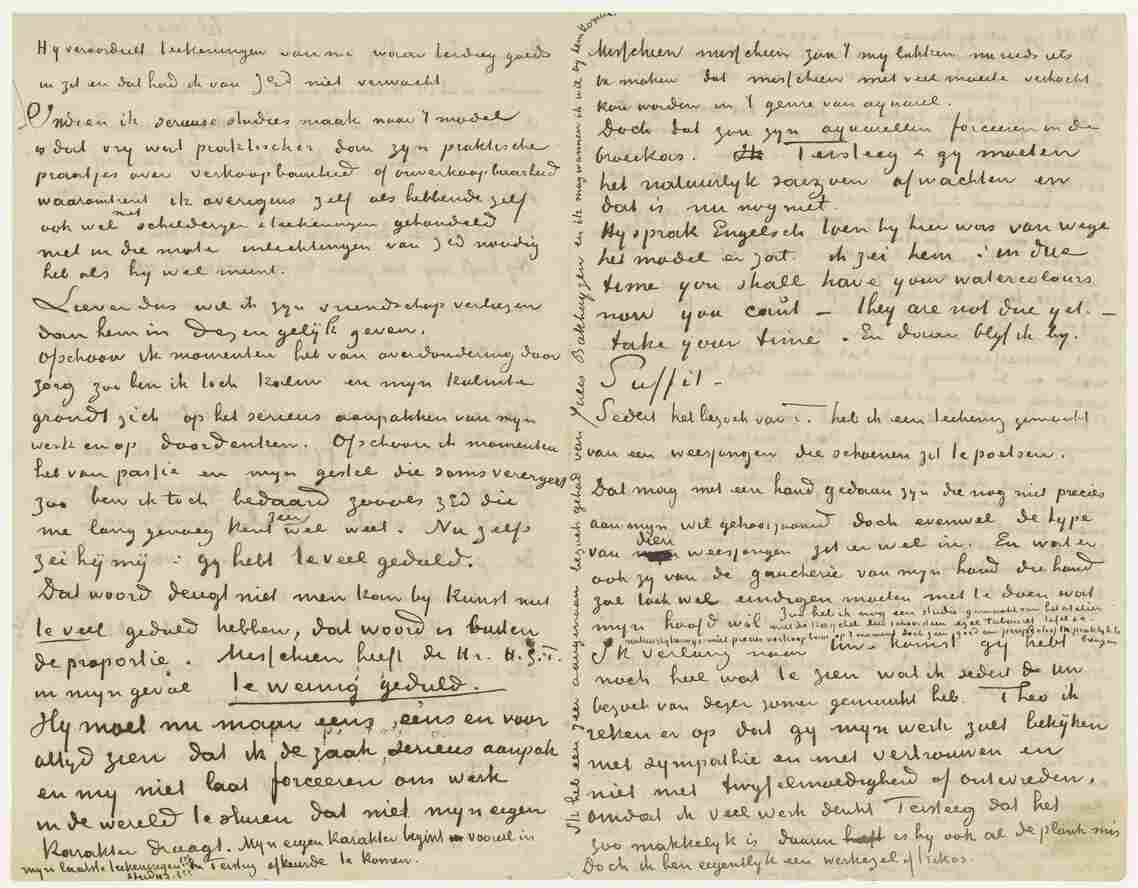 Hy veroordeelt teekeningen van me waar terdieg goeds
in zit en dat had ik van ZEd niet verwacht.
Indien ik serieuse studies maak naar 't model
is dat vry wat praktischer dan zyn praktische
praatjes over verkoopbaarheid of onverkoopbaarheid
waaromtrent ik overigens zelf als hebbende zelf
ook wel met schilderyen & teekeningen gehandeld
niet in die mate inlichtingen van ZEd noodig
heb als hy wel meent.
Liever dus wil ik zyn vriendschap verliezen
dan hem in dezen gelyk geven.
Ofschoon ik momenten heb van overdondering door
zorg zoo ben ik toch kalm en myn kalmte
grondt zich op het serieus aanpakken van myn
werk en op doordenken. Ofschoon ik momenten
heb van passie en myn gestel die soms verergert
zoo ben ik toch bedaard zooals ZEd die
me lang genoeg kent zeer wel weet. Nu zelfs
zei hij mij : gy hebt te veel geduld.
Dat woord deugt niet men kan by kunst niet
te veel geduld hebben, dat woord is buiten
de proportie. Misschien heeft de Hr. H.G.T.
in myn geval te weinig geduld.
Hy moet nu maar eens, eens en voor
altyd zien dat ik de zaak serieus aanpak
en my niet laat forceeren om werk
in de wereld te sturen dat niet myn eigen
karakter draagt. Myn eigen karakter begint vooral in
myn laatste teekeningen !!! en studies !!! die Tersteeg afkeurde te komen.
Ik heb een zeer aangenaam bezoek gehad van Jules Bakhuyzen en ik mag wanneer ik wil by hem komen.
Misschien misschien zou 't my lukken nu reeds iets
te maken dat misschien met veel moeite verkocht
kon worden in 't genre van aquarel.
Doch dat zou zyn aquarellen forceeren in de
broeikas. Tersteeg & gy moeten
het natuurlyk saizoen afwachten en
dat is nu nog niet.
Hy sprak Engelsch toen hy hier was van wege
het model en zoo. ik zei hem : in due
time you shall have your watercolours
now you can't — they are not due yet. —
take your time. En daar blyf ik by.
Suffit —
Sedert het bezoek van T. heb ik een teekening gemaakt
van een weesjongen die schoenen zit te poetsen.
Dat mag met een hand gedaan zyn die nog niet precies
aan myn wil gehoorzaamd doch evenwel de type
van dien weesjongen zit er wel in. En wat er
ook zy van de gaucherie van myn hand die hand
zal toch wel eindigen moeten met te doen wat
myn hoofd wil. Zoo heb ik nog een studie gemaakt van het atelier
met de kagchel den schoorsteen ezel tabouret tafel &c
natuurlyk nog niet precies verkoopbaar op 't moment doch zeer goed om perspectief te praktiseeren
Ik verlang naar Uw komst gij hebt
noch heel wat te zien wat ik sedert uw
bezoek van dezer zomer gemaakt heb. Theo ik
reken er op dat gy myn werk zult bekyken
met sympathie en met vertrouwen en
niet met twyfelmoedigheid of ontevreden.
omdat ik veel werk denkt Tersteeg dat het
zoo makkelyk is daarin is hy ook al de plank mis
Doch ik ben eigentlyk een werkezel of trekos.